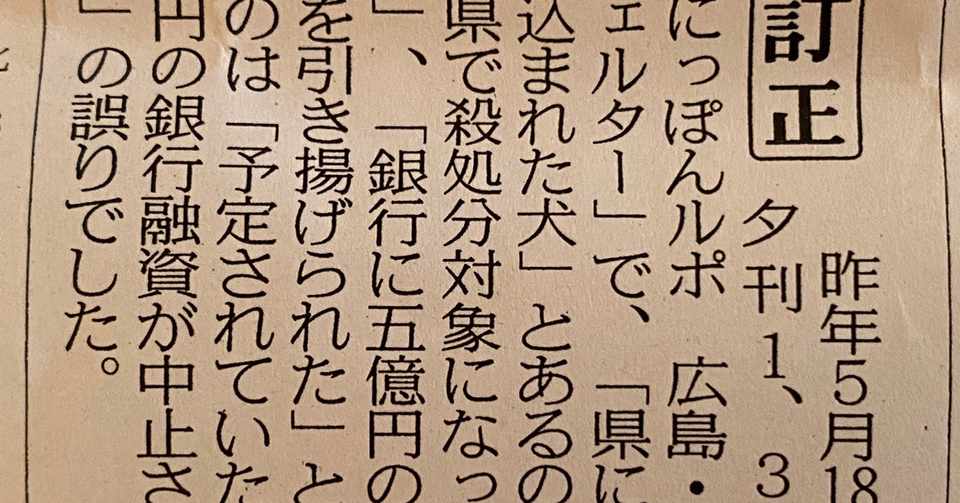 訂正
昨年5月18
夕刊1、3
にっぽんルポ 広島・
ェルター」で、「県に
込まれた犬」とあるの
県で殺処分対象になっ
」、「銀行に五億円の
を引き揚げられた」と
のは「予定されていた
円の銀行融資が中止さ
」の誤りでした。